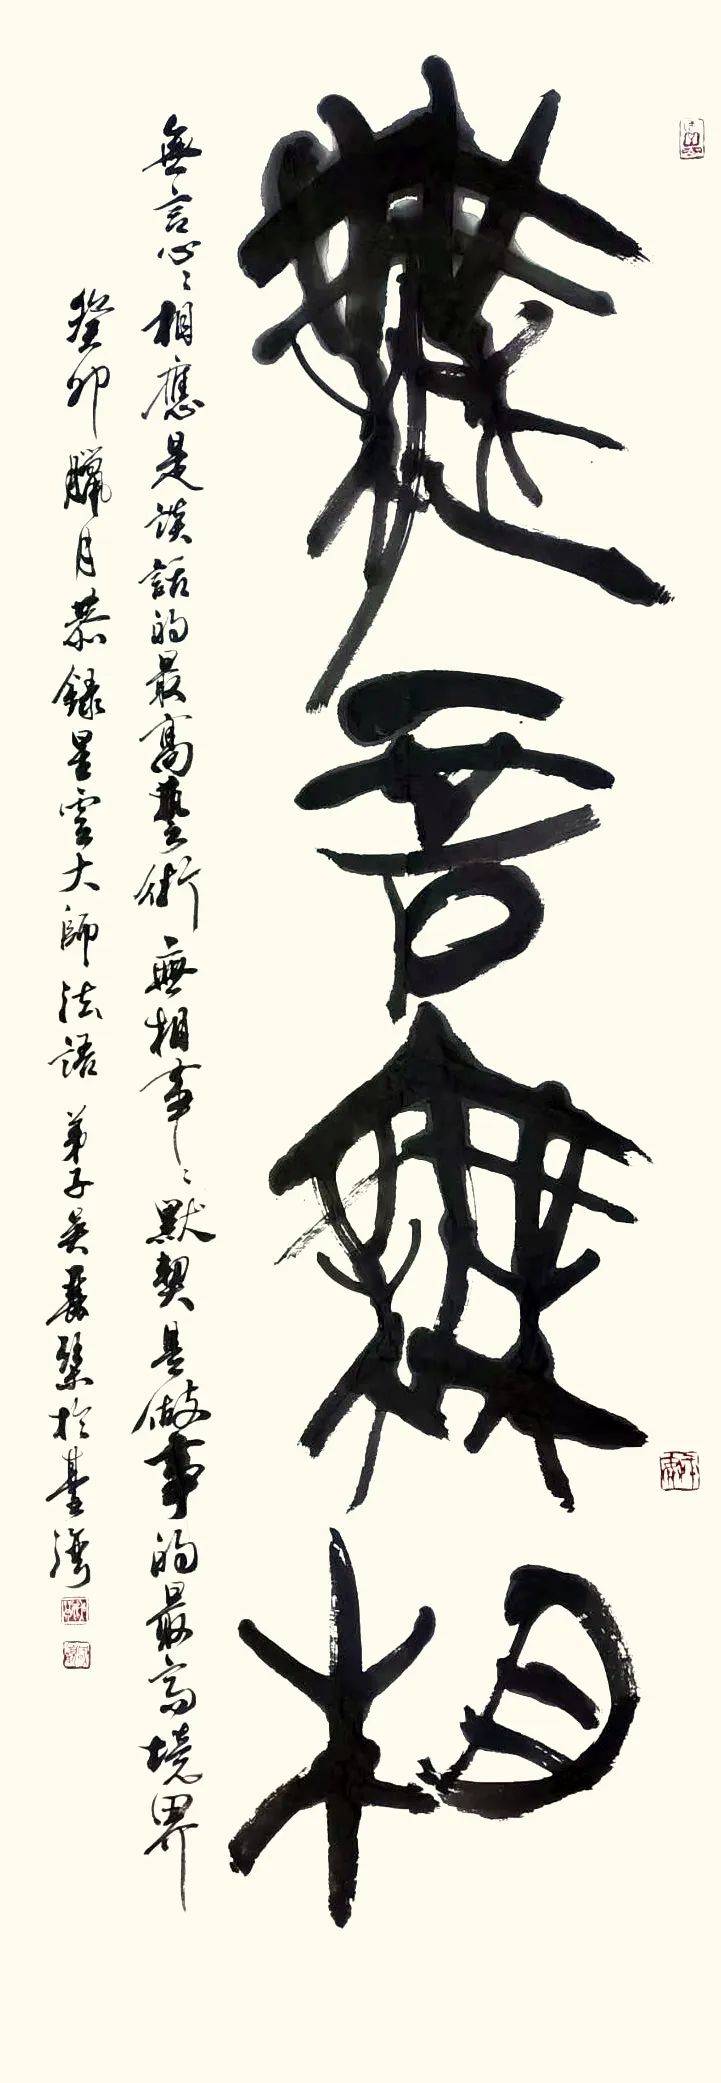 無言無相
無言心心相應是談話的最高藝術 無相事事默契是做事的最高境界
癸卯臘月恭錄星雲大師法語 弟子吳 於臺灣